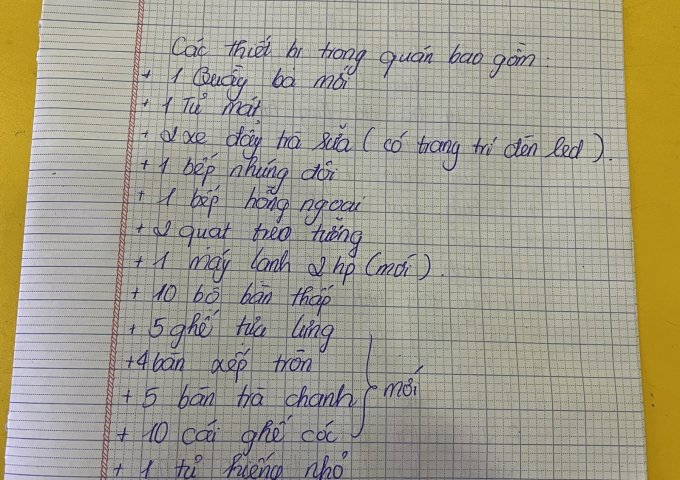 Các thiết bị trong quán bao gồm:
+ 1 Quầy ba mới
+ 1 Tủ mát
+ 2 xe đẩy trà sữa (có trang trí đèn led).
+ 1 bếp nhúng đôi
+ 1 bếp hồng ngoại
+ 2 quạt treo tường
+ 1 máy lạnh 2 hp (mới).
+ 10 bộ bàn thấp
+ 5 ghế tựa lưng
+ 4 bàn xếp tròn
+ 5 bàn trà chanh } mới
+ 10 cái ghế cóc
+ 1 tủ kiếng nhỏ